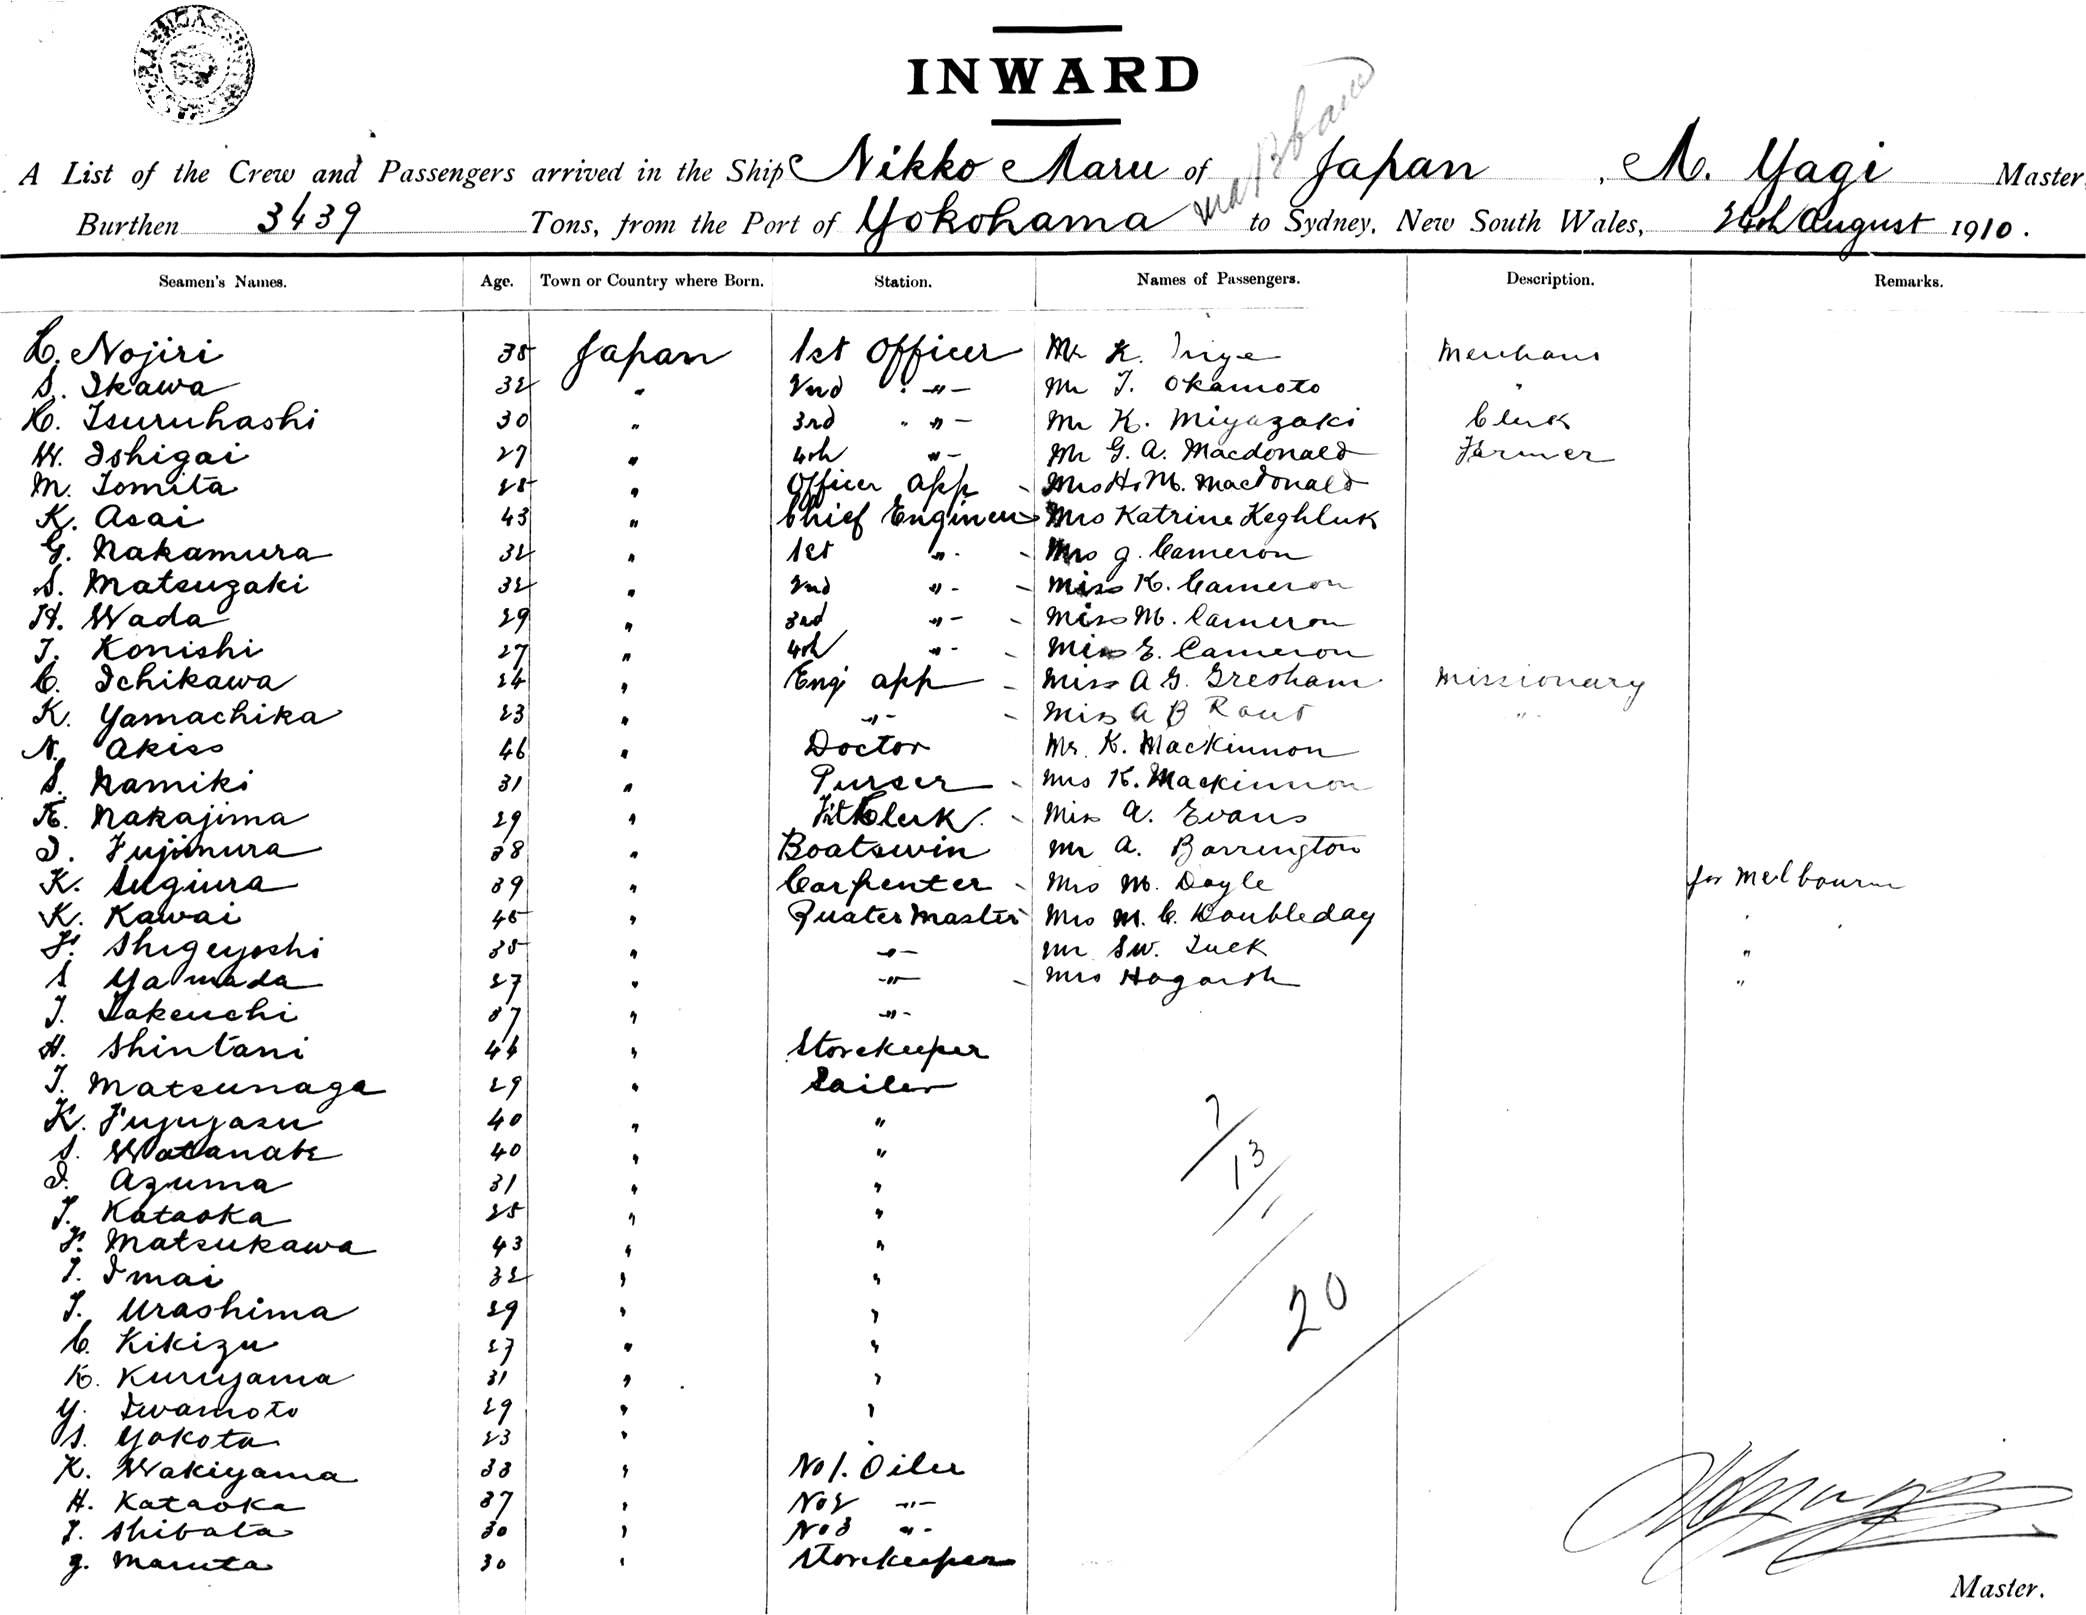 INWARD
A List of the Crew and Passengers arrived in the Ship Nikko Maru of Japan, M. Yagi Master,
Burthen 3439 Tons, from the Port of Yokohama to Sydney, New South Wales, 24th August 1910.
Seamen's Names. Age. Town or Country where Born. Station. Names of Passengers. Description. Remarks.
Nojiri 35 Japan 1st Officer Mr K. Merchant
S. Ikawa 32 " 2nd -"- Mr T. Okamoto "
Tsuruhashi 30 " 3rd -"- Mr K. Miyazaki Clerk
W. Ishigai 27 " 4th "- Mr G. A. Macdonald Farmer
M. Tomita 25 " Officer app - Mrs H. M. Macdonald
K. Asai 43 " Chief Engineer Mrs Katrine
G. Nakamura 32 " 1st "- - Mrs J. Cameron
S. Matsuzaki 32 " 2nd "- - Miss K. Cameron
H. Wada 29 " 3rd "- - Miss M. Cameron
T. Konishi 27 " 4th "- - Miss E. Cameron
C. Ichikawa 24 " Eng app - Miss A G. Gresham Missionary
K. Yamachika 23 " -"- - Miss A B "
N. Akiso 46 " Doctor Mr. K. Mackinnon
S. Namiki 31 " Purser - Mrs K. Mackinnon
K. Nakajima 29 " Clerk. - Miss A. Evans
I. Fujimura 38 " Boatswin Mr A. Barrington
K. Sugiura 39 " Carpenter - Mrs M. Doyle for Melbourne
K. Kawai 45 " Quater Master Mrs M. C. Doubleday "
F. Shigeyoshi 35 " -"- Mr Sw. Tuck "
S Yamada 27 " -"- - Mrs Hogarth "
T. Takeuchi 37 " -"-
H. Shintani 44 " Storekeeper
T. Matsunaga 29 " Sailer
K. Fujuyasu 40 " "
S. Watanabe 40 " "
I. Azuma 31 " "
T. Kataoka 25 " "
F. Matsukawa 43 " "
T. Imai 32 " "
T. Urashima 29 " "
C. Kikizu 27 " "
K. Kuruyama 31 " "
Y. Iwamoto 29 " "
S. Yokota 23 " "
K. Wakiyama 33 " No 1. Oiler
H. Kataoka 37 " No 2 -"-
T. Shibata 30 " No 3 "-
J. Maruta 30 " Storekeeper
7
13
1
20
Master.